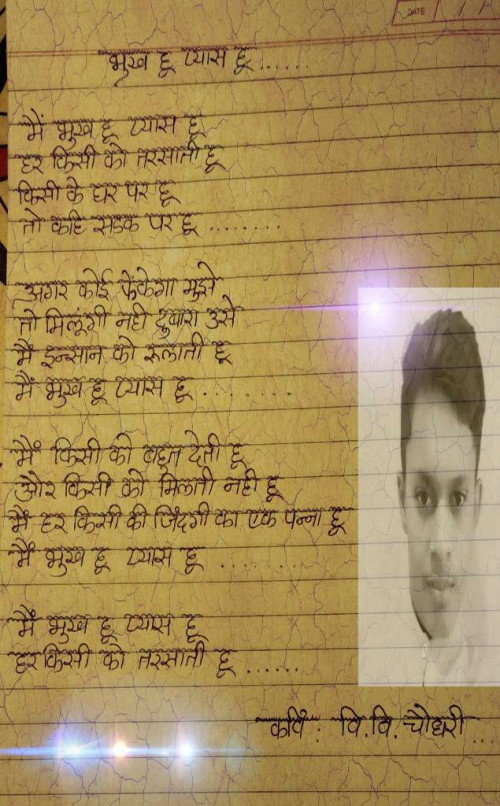 DATE
भुख हू प्यास हू......
मैं भुख हू प्यास हू
हर किसी को तरसाती हू
किसी के घर पर हू
तो कहि सडक पर हू ........
अगर कोई फेकेगा मुझे
तो मिलूंगी नही दुबारा उसे
मैं इन्सान को रूलाती हू
मैं भुख हू प्यास हू ........
मैं किसी को बहूत देती हू
और किसी को मिलती नही हू
मैं हर किसी की जिंदगी का एक पन्ना हू
मैं भुख हू प्यास हू ........
मैं भुख हू प्यास हू
हर किसी को तरसाती हू ......
कवि : वि.वि.चौधरी ...